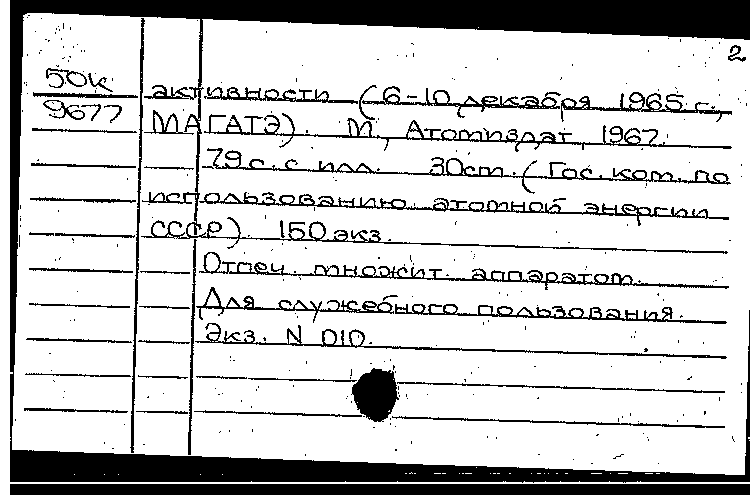 2
50к
9677
активности (6-10 декабря 1965 г.,
МАГАТЭ). М., Атомиздат, 1967.
79 с. с илл. 30 см. (Гос. ком. по
использованию атомной энергии
СССР). 150 экз.
Отпеч. множит. аппаратом.
Для служебного пользования.
Экз. N 010.